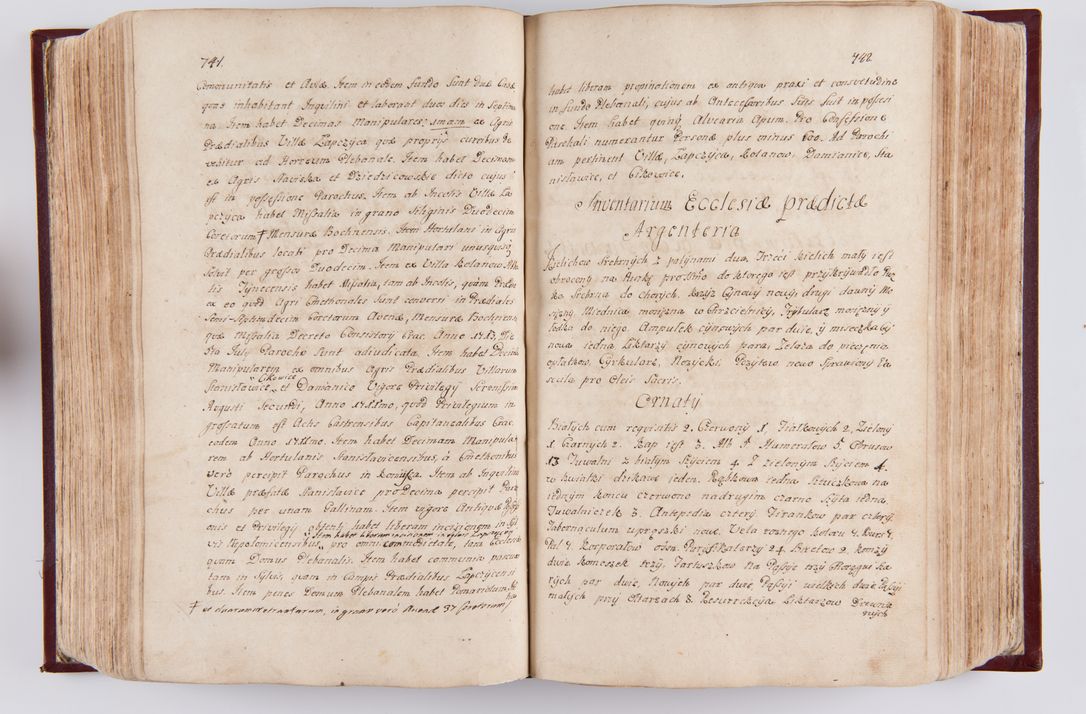 741.
Communitatis et Aevae. Item in eodem fundo sunt duae Casae
quas inhabitant Inquilini et laborant duos dies in Septima
na Item habet Decimas Manipulares, unam ex Agris
Praedialibus Villae Łapczyca quae proprijs curribus de
vehitur ad Horreum Plebanale. Item habet Decimam
ex Agris Nawiska et Dziedzicowskie dicto cujus i
est in possessione Parochus. Item ab Incolis Villae Ła
pczyca habet Missalia in grano Siliginis Duodecim
Coretorum † Mensurae Bochnensis. Item Hortulani in Agris
Praedialibus locati pro Decima Manipulari unusquisq
solvit per grossos Duodecim. Item ex Villa Kolanow Abba
tis Tynecensis habet Missalia, tam ab Incolis, quam Praedio
ex eo quod Agri Cmethonales sunt conversi in Praediales
Semi-Septendecim Coretorum Avenae, Mensurae Bochnens
quae Missalia Decreto Consistorij Crac. Anno 1713, Die
5ta July Parocho sunt adiudicata. Item habet Decimam
Manipularem ex omnibus Agris Praedialibus Villarum
Cikowice
Stanisławice et Damianice Vigore Privilegij Serenissimi
Augusti Secundi, Anno 1711mo, quod Privilegium in
grossatum est Actis Castrensibus Capitanealibus Crac.
eodem Anno 1711no. Item habet Decimam Manipula
rem ab Hortulanis Stanislavicensibus, à Cmethonibus
verò percipit Parochus in Item ab Inquilinis
Villae praefatae Stanisławice pro Decima percipit Paro
chus per unam Gallinam. Item vigore Antiquae Possessi
onis et Privilegij obtenti habet liberam incisionem in Syl
Item habet liberam incisionem in sylvis Łapczycen
vis Nepolomicensibus, pro omni commoditate, tam Ecclesiae
quam Domus Plebanalis. Item habet communia pascua
tam in Sylvis, quam in Campis Praedialibus Łapczycensi
bus. Item penes Domum Plebanalem habet Pomarium,
† ex duarum in grano verò Avenae 37 Coretorum
742
habet liberam propinationem ex antiqua praxi et consvetudine
in fundo Plebanali, cujus ab Antecessoribus suis fuit in possesi
one. Item habet Alvearia Apum. Pro Confessione
Paschali numerantur Personae plus minus 600. Ad Parochi
am pertinent Villae, Łapczyca, Kolanow, Damianice, Sta
nisławice, et Cikowice.
Inventarium Ecclesiae praedictae
Argenteria
Kielichow srebrnych z patynami dwa, Trzeci kielich mały iest
obrocony na Puszkę prostno do ktorego iest przykrywadło Pu
ka srebrna do Chorych. Krzyż Cynowy nowy, drugi dawny Mo
siężny. Miednica mosiężna w Chrzcielnicy, Trybularz mosiężny y
łodka do niego. Ampułek cynowych par dwie, y miseczka by
nowa iedna Liktarzy cynowych para. Żelaza do pieczenia
opłatkow, Cyrkularz, Nożyczki. Pozytyw nowo sprawiony Va
scula pro Oleis Sacris.
Ornaty
Białych cum requisitis 2. Czerwony 1. Fiałkowych 2. Zielony
1 Czarnych 2. Kap iest 3. Alb 5 Humerałow 5 Obrusow
13 Tuwalni z białym szyciem 4. Z zielonym szyciem 4.
w kwiatki dzikowe ieden. Rąbkowa iedna sztuczkowa na
iednym końcu czerwono nadrugim czarno szyta iedna,
Tuwalniczek 3. Antepedia cztery Firankow par cztery.
Tabernaculum uproszki nowe. Vela rożnego koloru 7. Burs 7.
Pal 7. Korporałow osm. Puryfikatarzy 24. Biretow 2. Komży
dwie Komeszek trzy. Fartuszkow na Pasyie trzy Horągwi Sta
rych par dwie, Nowych par dwie Pasyi wielkich dwie Pasyi
małych przy Ołtarzach 8. Resurrekcya, Liktarzow Drewnia
nych